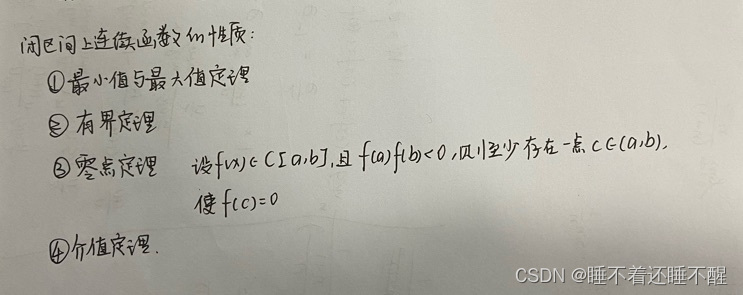 闭区间上连续函数的性质:
①最小值与最大值定理
②有界定理
③零点定理 设f(x)∈C[a,b],且f(a)f(b)<0,则至少存在一点c∈(a,b),
使f(c)=0
④介值定理.
CSDN @睡不着还睡不醒